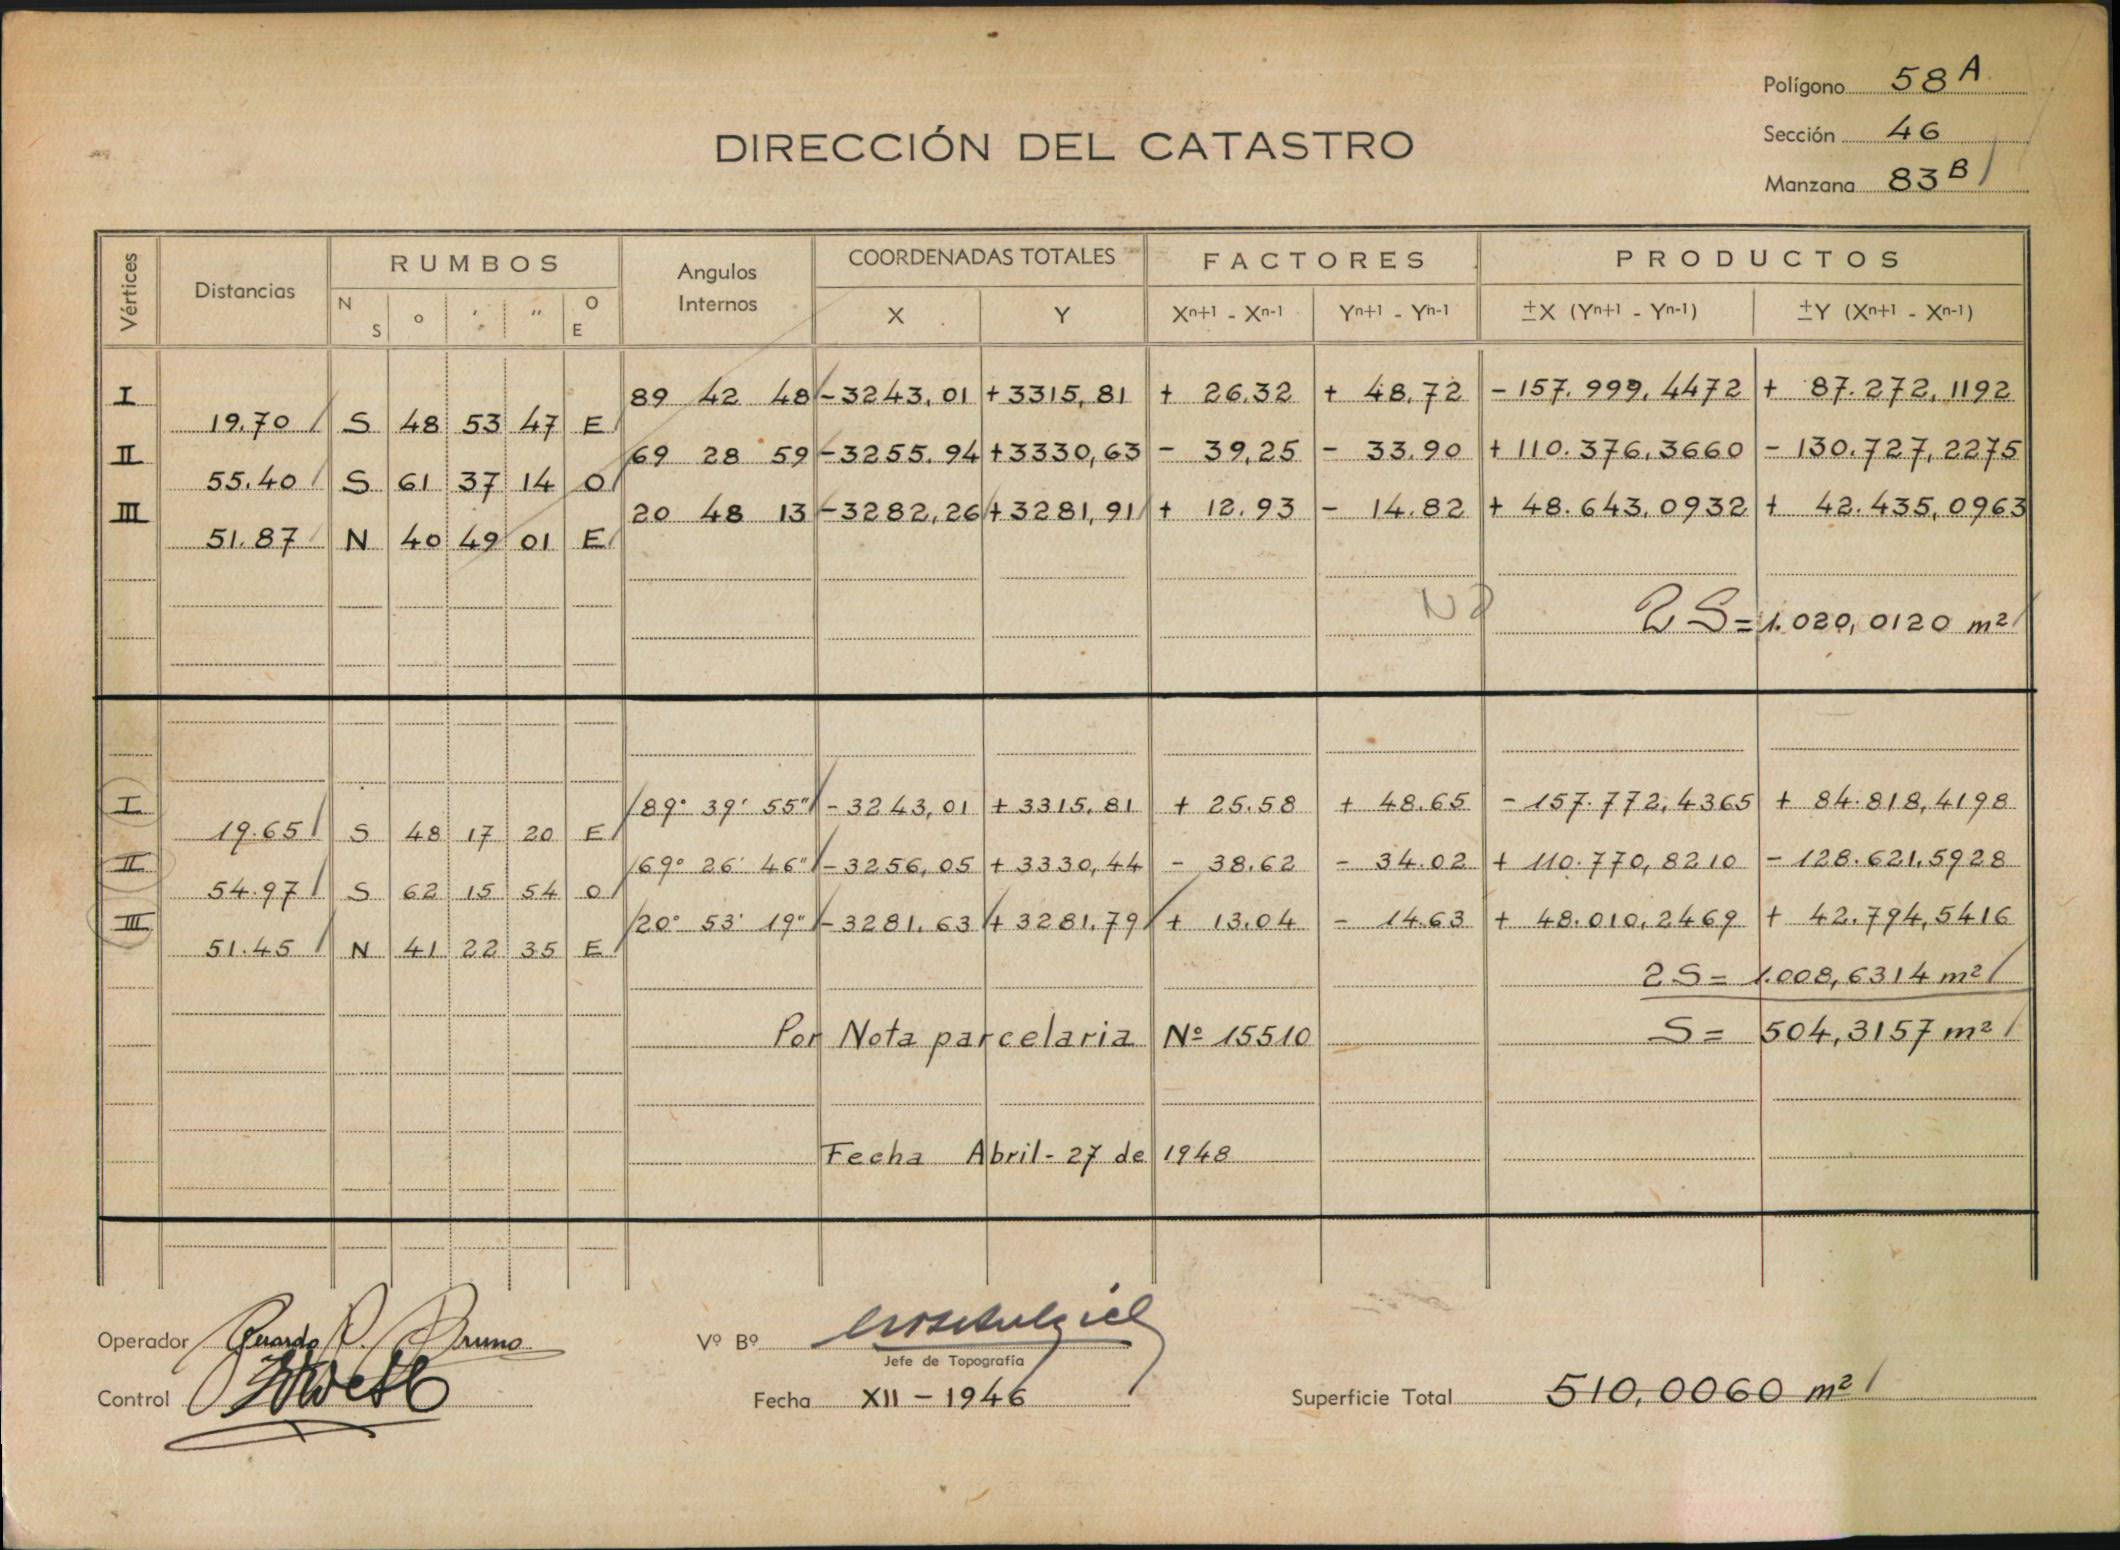 Polígono 58 A
DIRECCIÓN DEL CATASTRO
Sección 46
Manzana 83 B
Vértices Distancias RUMBOS Angulos Internos COORDENADAS TOTALES FACTORES PRODUCTOS
N S o ' " O E X Y Xn+1 - Xn-1 Yn+1 - Yn-1 ±X (Yn+1 - Yn-1) ±Y (Xn+1 - Xn-1)
I 89 42 48 -3243,01 +3315,81 + 26.32 + 48,72 - 157.999,4472 + 87.272,1192
19.70 S 48 53 47 E
II 69 28 59 -3255.94 +3330,63 - 39,25 - 33.90 + 110.376,3660 - 130.727,2275
55.40 S 61 37 14 O
III 20 48 13 -3282,26 +3281,91 + 12.93 - 14.82 + 48.643,0932 + 42.435,0963
51.87 N 40 49 01 E
2 S = 1.020,0120 m²
I 89° 39' 55" -3243,01 +3315,81 + 25.58 + 48.65 - 157.772,4365 + 84.818,4198
19.65 S 48 17 20 E
II 69° 26' 46" -3256,05 +3330,44 - 38.62 - 34.02 + 110.770,8210 - 128.621,5928
54.97 S 62 15 54 O
III 20° 53' 19" -3281,63 +3281,79 + 13.04 - 14.63 + 48.010,2469 + 42.794,5416
51.45 N 41 22 35 E
2 S = 1.008,6314 m²
Por Nota parcelaria Nº 15510 S = 504,3157 m²
Fecha Abril - 27 de 1948
Operador Bruno Vº Bº
Jefe de Topografía
Control Fecha XII - 1946 Superficie Total 510,0060 m²